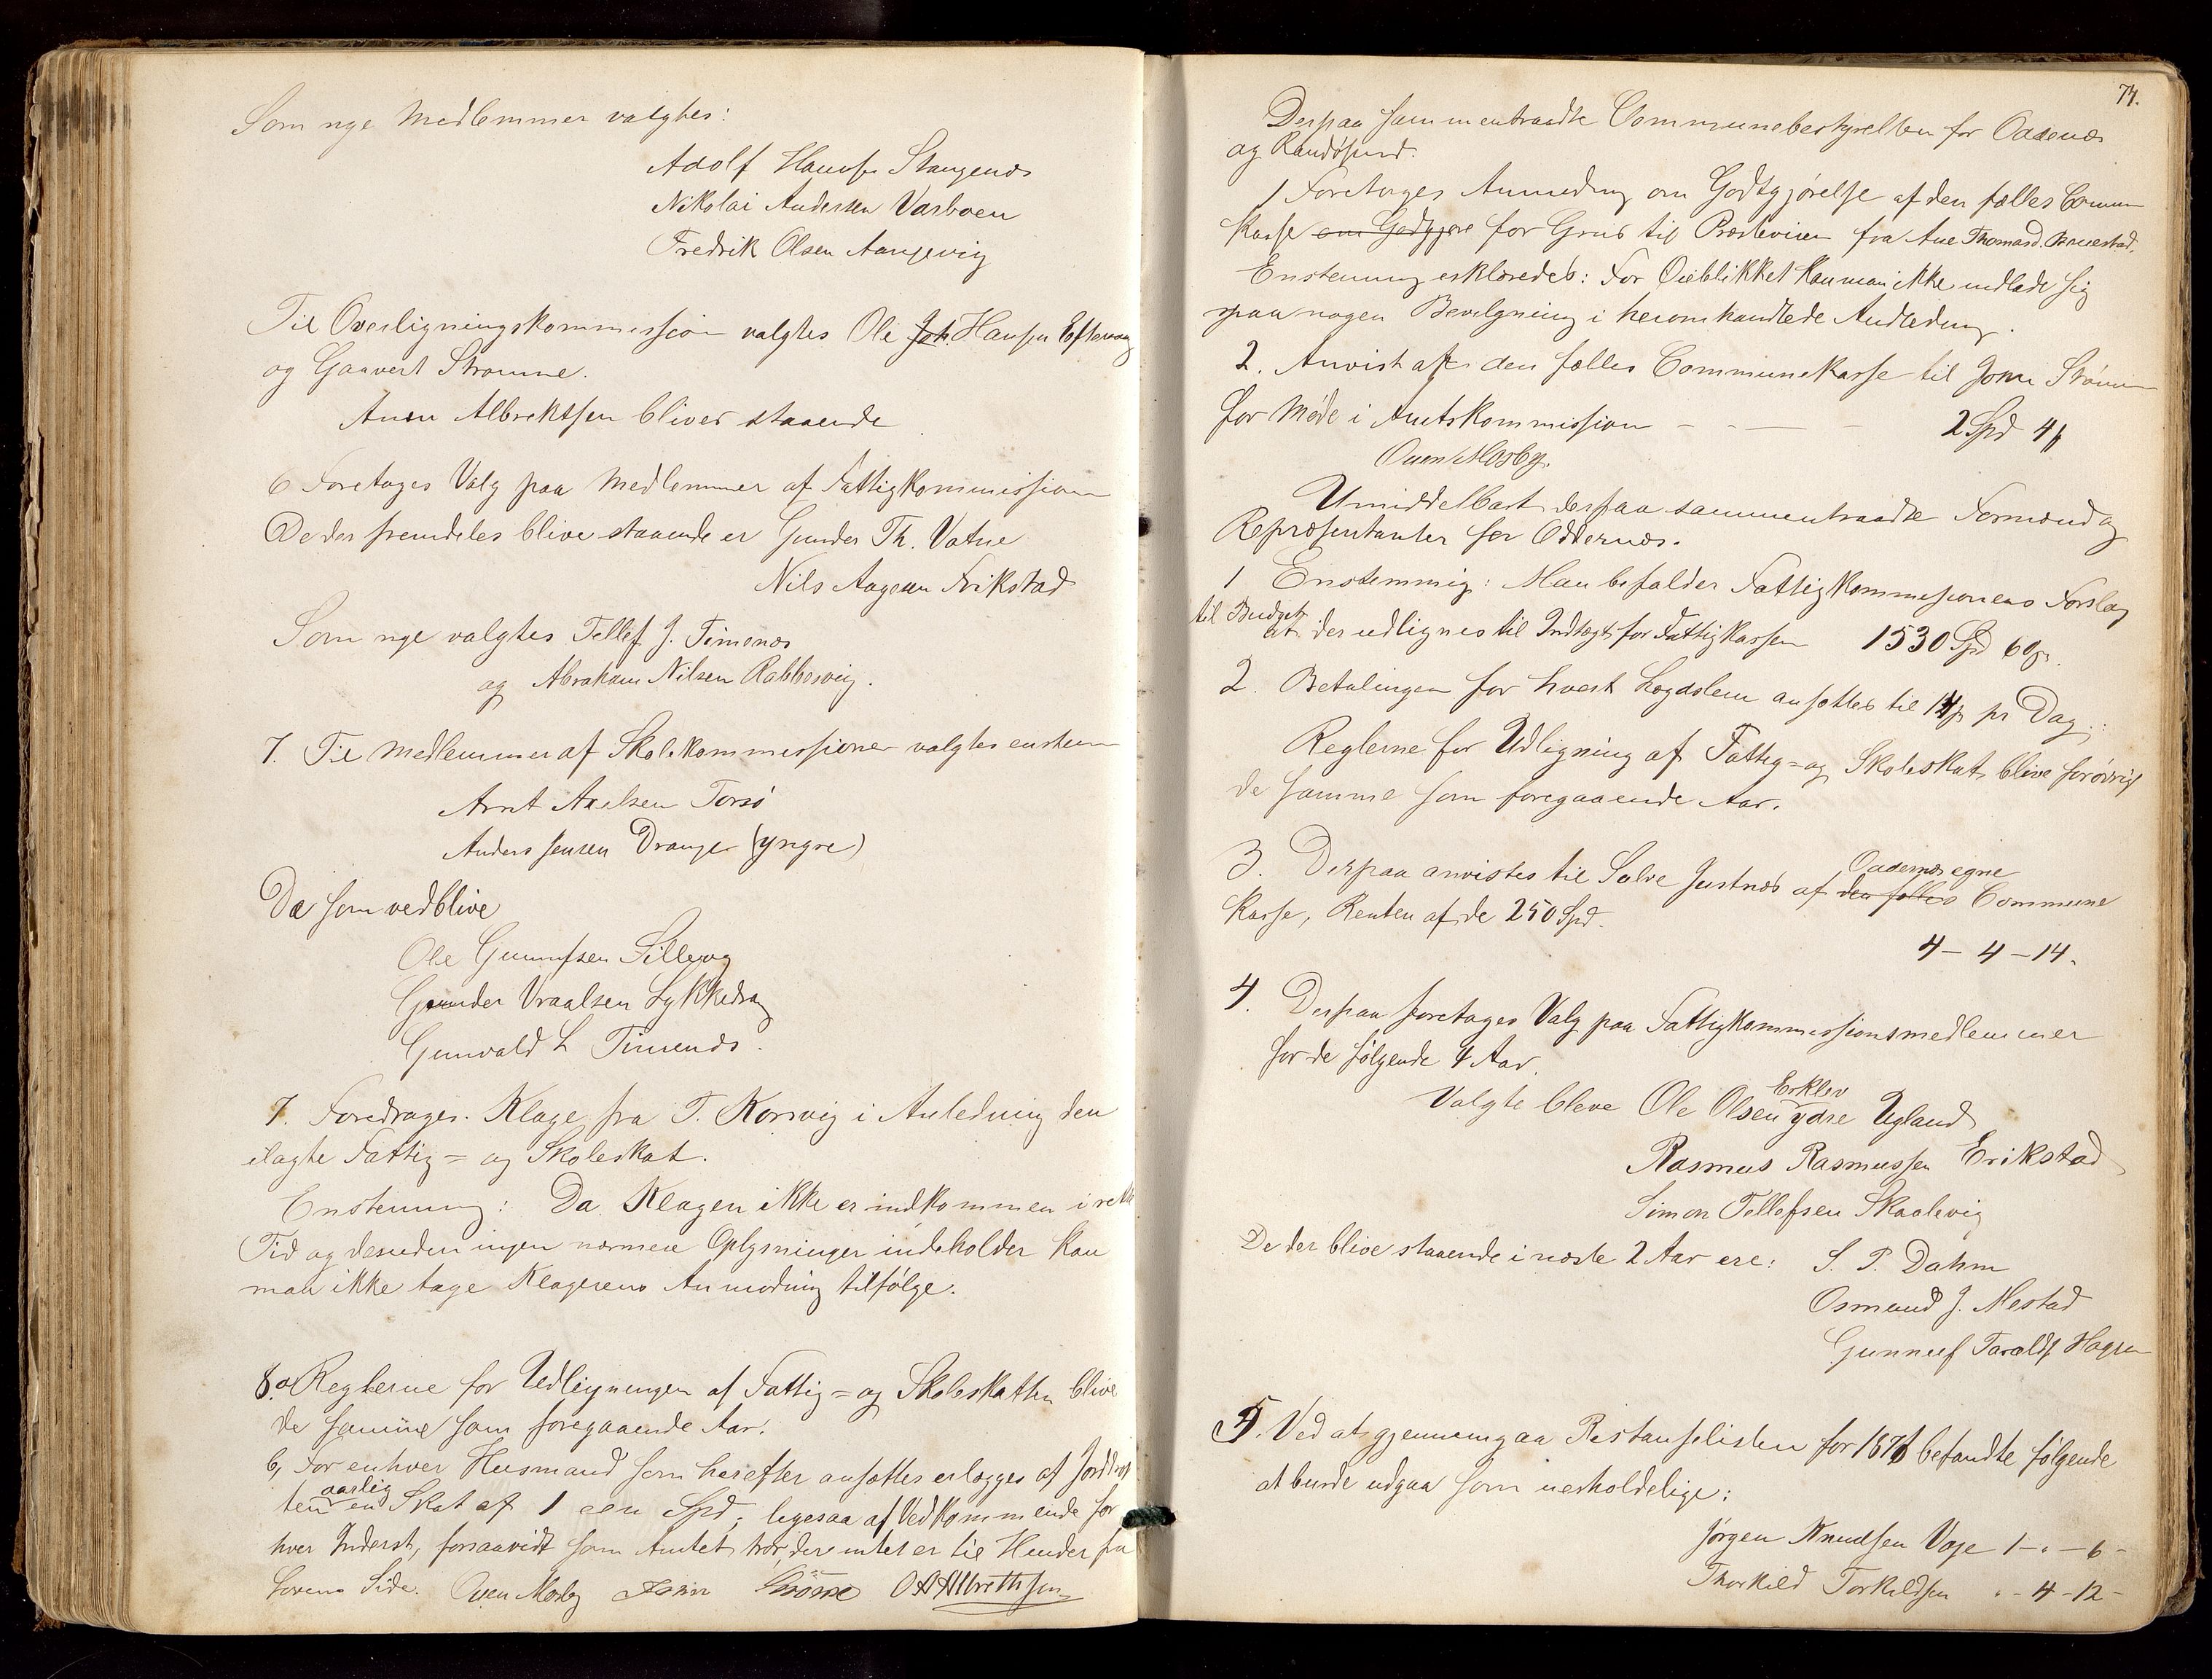 Som nye Medlemmer valgtes:
Adolf Hansen Stangenæs
Nikolai Andersen Varboen
Fredrik Olsen Aangevig
Til Overligningskommission valgtes Ole Joh. Hansen Eftevaag
og Gaavert Strømme.
Anen Albrektsen bliver staaende
6 Foretoges Valg paa Medlemmer af Fattigkommissionen
De der fremdeles blive staaende er Gunder Th. Vatne
Nils Aagesen Frikstad
Som nye valgtes Tellef J. Timenæs
og Abraham Nilsen Rabbersvig.
7. Til Medlemmer af Skolekommissionen valgtes enstem
Arnt Axelsen Torsø
Anders Jensen Drange (yngre)
De som vedblive
Ole Gunnufsen Sillevog
Gunder Vraalsen Lykkedrag
Gunvald L Timenæs.
7. Foredroges. Klage fra T. Korsvig i Anledning den
ilagte Fattig= og Skoleskat.
Enstemig: Da Klagen ikke er indkommen i rette
Tid og desuden ingen nærmere Oplysninger indeholder kan
man ikke tage Klagerens Anmodning tilfølge.
8. a Reglerne for Udligningen af Fattig= og Skoleskatten blive
de samme som foregaaende Aar.
b, For enhver Husmand som herefter ansættes erlægges af Jorddrot
ten aarlig en Skat af 1 een Spd; ligesaa af Vedkommende for
hver Inderst, forsaavidt som Amtet tror, dere intet er til Hinder fra
Lovens Side. Owen Mosby John Strømme O A Albrethsen
74.
Derpaa sammentraadte Communebestyrelsen for Oddernæs
og Randøsund.
1 Foretoges Anmodning om Godtgjørelse af den fælles Commune
kasse om Godgjøre for Grus til Præsteveien fra Ane Thomasd.
Enstemmig erklæredes: For Øieblikket kan man ikke indlade sig
paa nogen Bevilgning i heromhandlede Andledning.
2. Anvist af den fælles Communekasse til John Strømme
for Møde i Amtskommission - - - 2 Spd 4 ß
Owen Mosby.
Umiddelbart derpaa sammentraadte Formænd og
Repræsentanter for Oddernæs.
1 Enstemmig: Man befalder Fattigkommissionens Forslag
til Budget at der udlignes til Indtægt for Fattigkassen 1530 Spd 60 ß.
2. Betalingen for hvert Lægdslem ansættes til 14 ß pr Dag.
Reglerne for Udligning af Fattig= og Skoleskat blive forøvrigt
de samme som foregaaende Aar.
3. Derpaa anvistes til Salve Justnæs af den fælles Oddernæs egne Commune
kasse, Renten af de 250 Spd.
4 - 4 - 14.
4. Derpaa foretoges Valg paa Fattigkommissionsmedlemmer
for de følgende 4 Aar.
Valgte bleve Ole Olsen Erklev ydre Ugland
Rasmus Rasmussen Erikstad
Simon Tellefsen Skaalevig
De der blive staaende i næste 2 Aar ere: S. P. Dahm
Osmund J. Mestad
Gunnuf Taralds Hagen
5. Ved at gjennemgaa Restanselisten for 1871 befandtes følgende
at burde udgaa som uerholdelige:
Jørgen Knudsen Voje 1 - " - 6 -
Thorkild Torkildsen " - 4 - 12 -